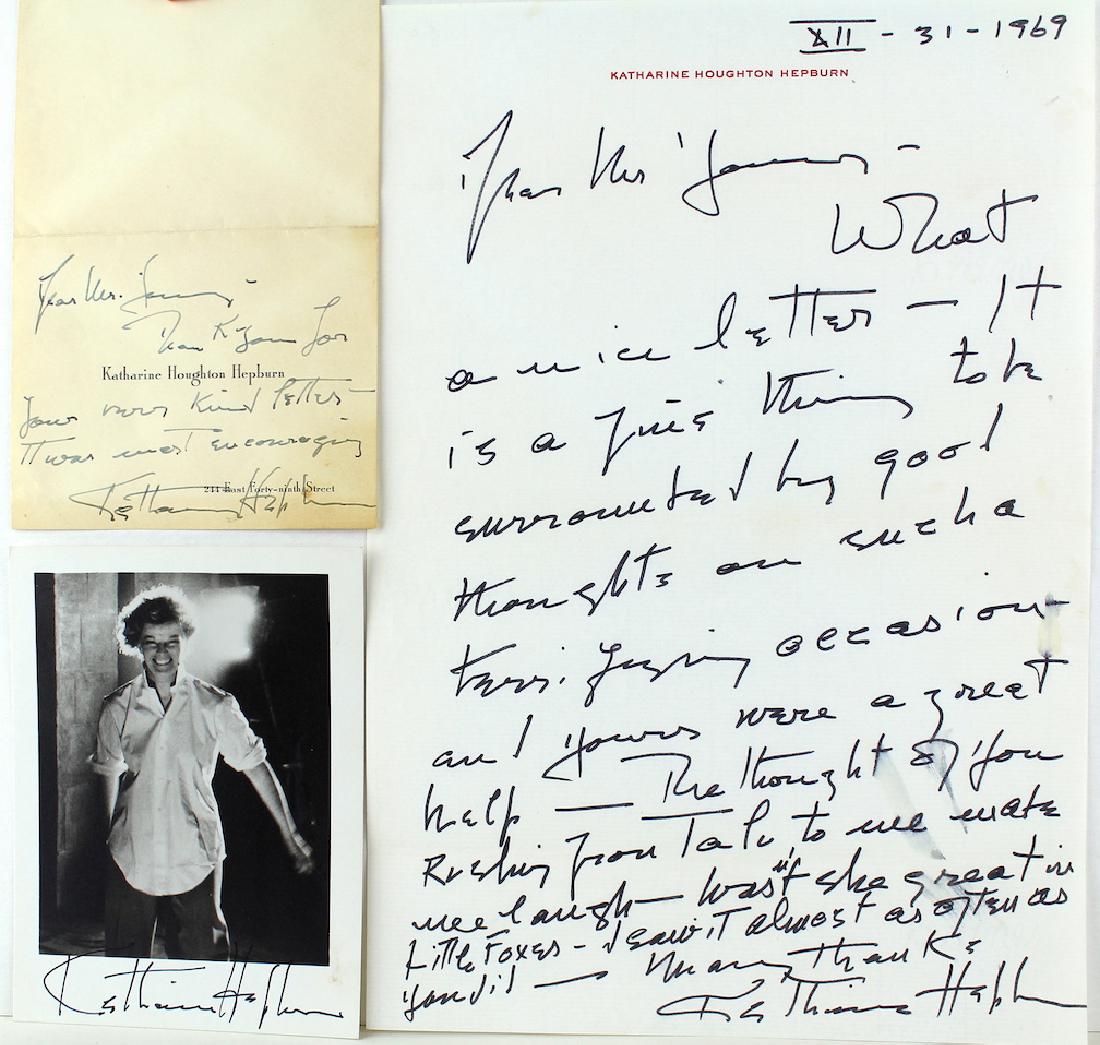 Dear Mr.
Thank you for
Katharine Houghton Hepburn
your very kind letter
It was most encouraging
244 East Forty-ninth Street
Katharine Hepburn
Katharine Hepburn
XII - 31 - 1969
KATHARINE HOUGHTON HEPBURN
Dear Mr
What
a nice letter — It
is a fine thing to be
surrounded by good
thoughts on such a
terrifying occasion
and yours were a great
help — The thought of you
Rushing from Talu, to me made
me laugh — wasn't she great in
Little Foxes - I saw it almost as often as
you did — Many thanks
Katharine Hepburn